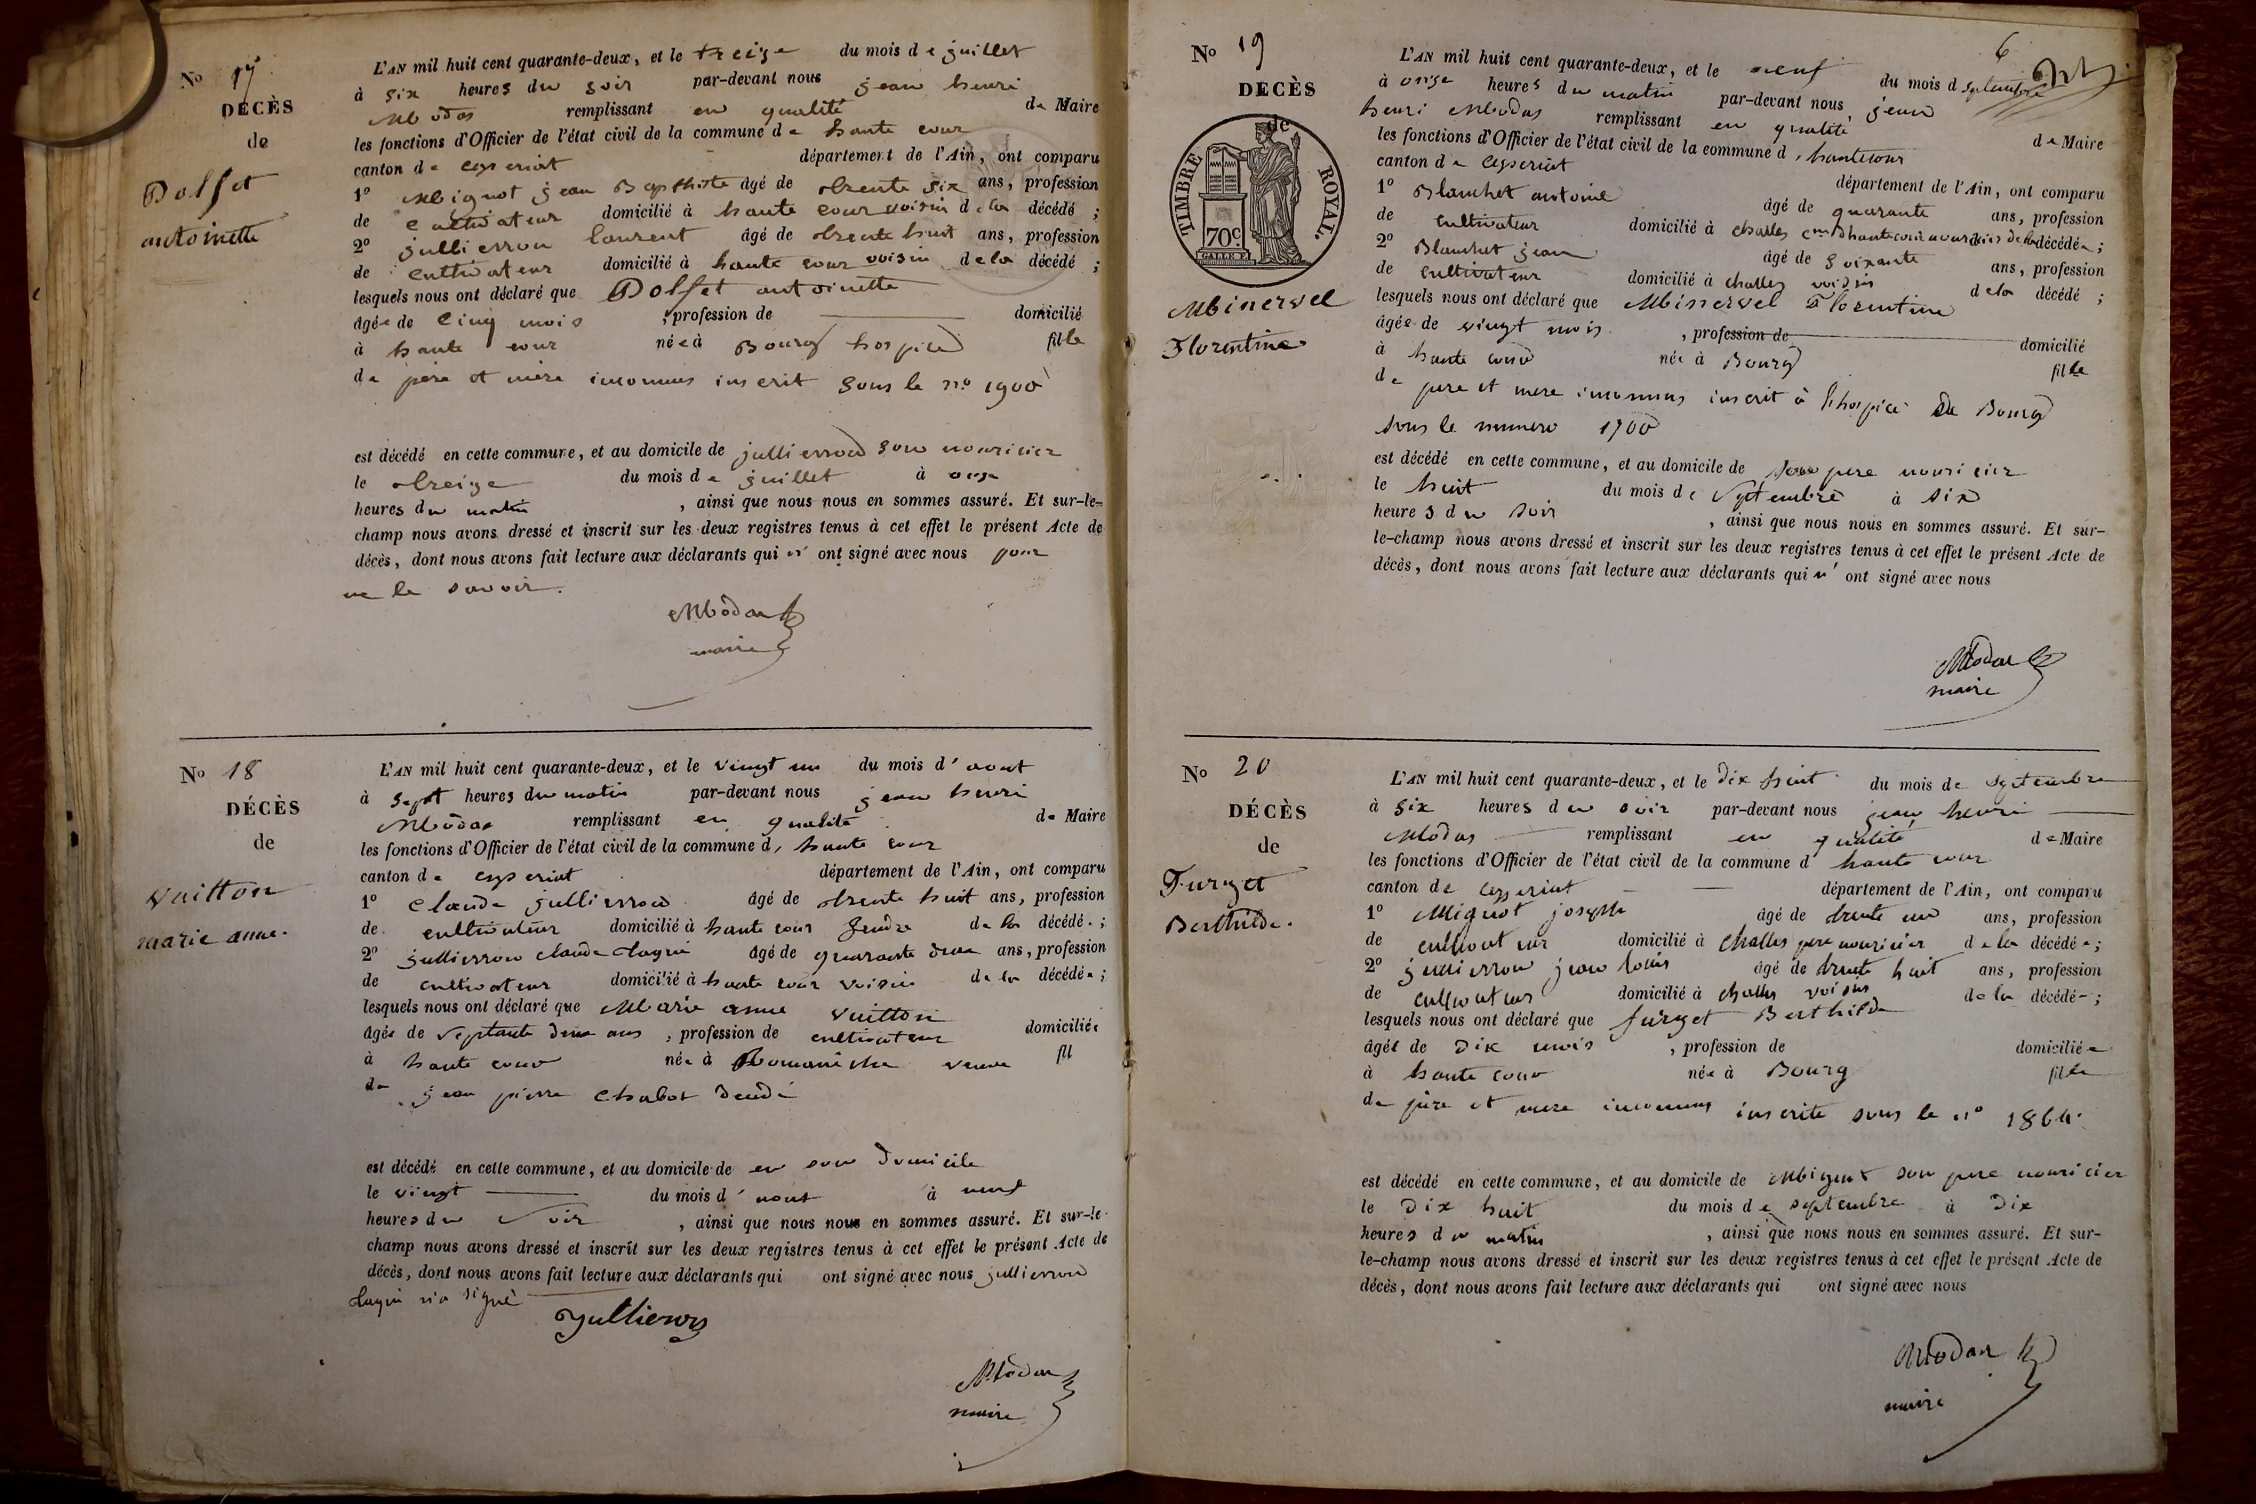 No 17
DÉCÈS
de
Dolfet
antoinette
L'AN mil huit cent quarante-deux, et le treize du mois de juillet
à six heures du soir par-devant nous jean henri
Modas remplissant en qualité de Maire
les fonctions d'Officier de l'état civil de la commune de haute cour
canton de ceyseriat département de l'Ain, ont comparu
1o Mignot jean Baptiste âgé de trente six ans, profession
de cultivateur domicilié à haute cour voisin de la décédé ;
2o jullierron laurent âgé de trente huit ans, profession
de cultivateur domicilié à haute cour voisin de la décédé ;
lesquels nous ont déclaré que Dolfet antoinette
âgée de cinq mois , profession de domicilié
à haute cour née à Bourg hospice fille
de pere et mère inconnus inscrit sous le no 1900
est décédé en cette commune, et au domicile de jullierron son nouricier
le treize du mois de juillet à onze
heures du matin , ainsi que nous nous en sommes assuré. Et sur-le-
champ nous avons dressé et inscrit sur les deux registres tenus à cet effet le présent Acte de
décès, dont nous avons fait lecture aux déclarants qui n' ont signé avec nous pour
ne le savoir.
Modas
maire
No 18
DÉCÈS
de
vuitton
marie anne.
L'AN mil huit cent quarante-deux, et le vingt un du mois d' aout
à sept heures du matin par-devant nous jean henri
Modas remplissant en qualité de Maire
les fonctions d'Officier de l'état civil de la commune d, haute cour
canton de ceyseriat département de l'Ain, ont comparu
1o claude jullierron âgé de trente huit ans, profession
de cultivateur domicilié à haute cour gendre de la décédé. ;
2o jullierron claude âgé de quarante deux ans, profession
de cultivateur domicilié à haute cour voisin de la décédée ;
lesquels nous ont déclaré que Marie anne vuitton
âgée de septante deux ans , profession de cultivateur domiciliée
à haute cour née à Romanêche veuve fil
de jean pierre chabot
est décédé en cette commune, et au domicile de en son domicile
le vingt du mois d' aout à neuf
heures du soir , ainsi que nous nous en sommes assuré. Et sur-le-
champ nous avons dressé et inscrit sur les deux registres tenus à cet effet le présent Acte de
décès, dont nous avons fait lecture aux déclarants qui ont signé avec nous jullierron
n'a signé
Jullieron
Modas
maire
6
No 19
DÉCÈS
de
TIMBRE ROYAL.
70c
Minervel
Florentine
L'AN mil huit cent quarante-deux, et le neuf du mois d septembre
à onze heures du matin par-devant nous jean
henri Modas remplissant en qualité de Maire
les fonctions d'Officier de l'état civil de la commune d, hautecour
canton de ceyseriat département de l'Ain, ont comparu
1o Blanchet antoine âgé de quarante ans, profession
de cultivateur domicilié à challes de la décédée ;
2o Blanchet jean âgé de soixante ans, profession
de cultivateur domicilié à challes voisin de la décédé ;
lesquels nous ont déclaré que Minervel Florentine
âgée de vingt mois , profession de domicilié
à haute cour née à Bourg fille
de pere et mere inconnus inscrit à l'hospice de Bourg
sous le numero 1700
est décédé en cette commune, et au domicile de son pere nouricier
le huit du mois de septembre à six
heures du soir , ainsi que nous nous en sommes assuré. Et sur-
le-champ nous avons dressé et inscrit sur les deux registres tenus à cet effet le présent Acte de
décès, dont nous avons fait lecture aux déclarants qui n' ont signé avec nous
Modas
maire
No 20
DÉCÈS
de
Furget
Berthilde.
L'AN mil huit cent quarante-deux, et le dix huit du mois de septembre
à six heures du soir par-devant nous jean henri
Modas remplissant en qualité de Maire
les fonctions d'Officier de l'état civil de la commune d haute cour
canton de ceyseriat département de l'Ain, ont comparu
1o Mignot joseph âgé de trente un ans, profession
de cultivateur domicilié à challes pere nouricier de la décédée ;
2o jullierron jean louis âgé de trente huit ans, profession
de cultivateur domicilié à challes voisin de la décédée ;
lesquels nous ont déclaré que furget Berthilde
âgée de dix mois , profession de domiciliée
à haute cour née à Bourg fille
de père et mere inconnus inscrite sous le no 1864
est décédé en cette commune, et au domicile de Mignot son pere nouricier
le dix huit du mois de septembre à dix
heures du matin , ainsi que nous nous en sommes assuré. Et sur-
le-champ nous avons dressé et inscrit sur les deux registres tenus à cet effet le présent Acte de
décès, dont nous avons fait lecture aux déclarants qui ont signé avec nous
Modas
maire